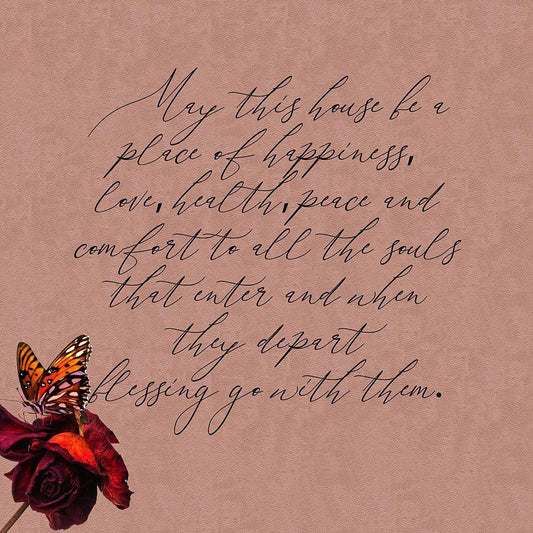 May this house be a
place of happiness,
love, health, peace and
comfort to all the souls
that enter and when
they depart
blessing go with them.